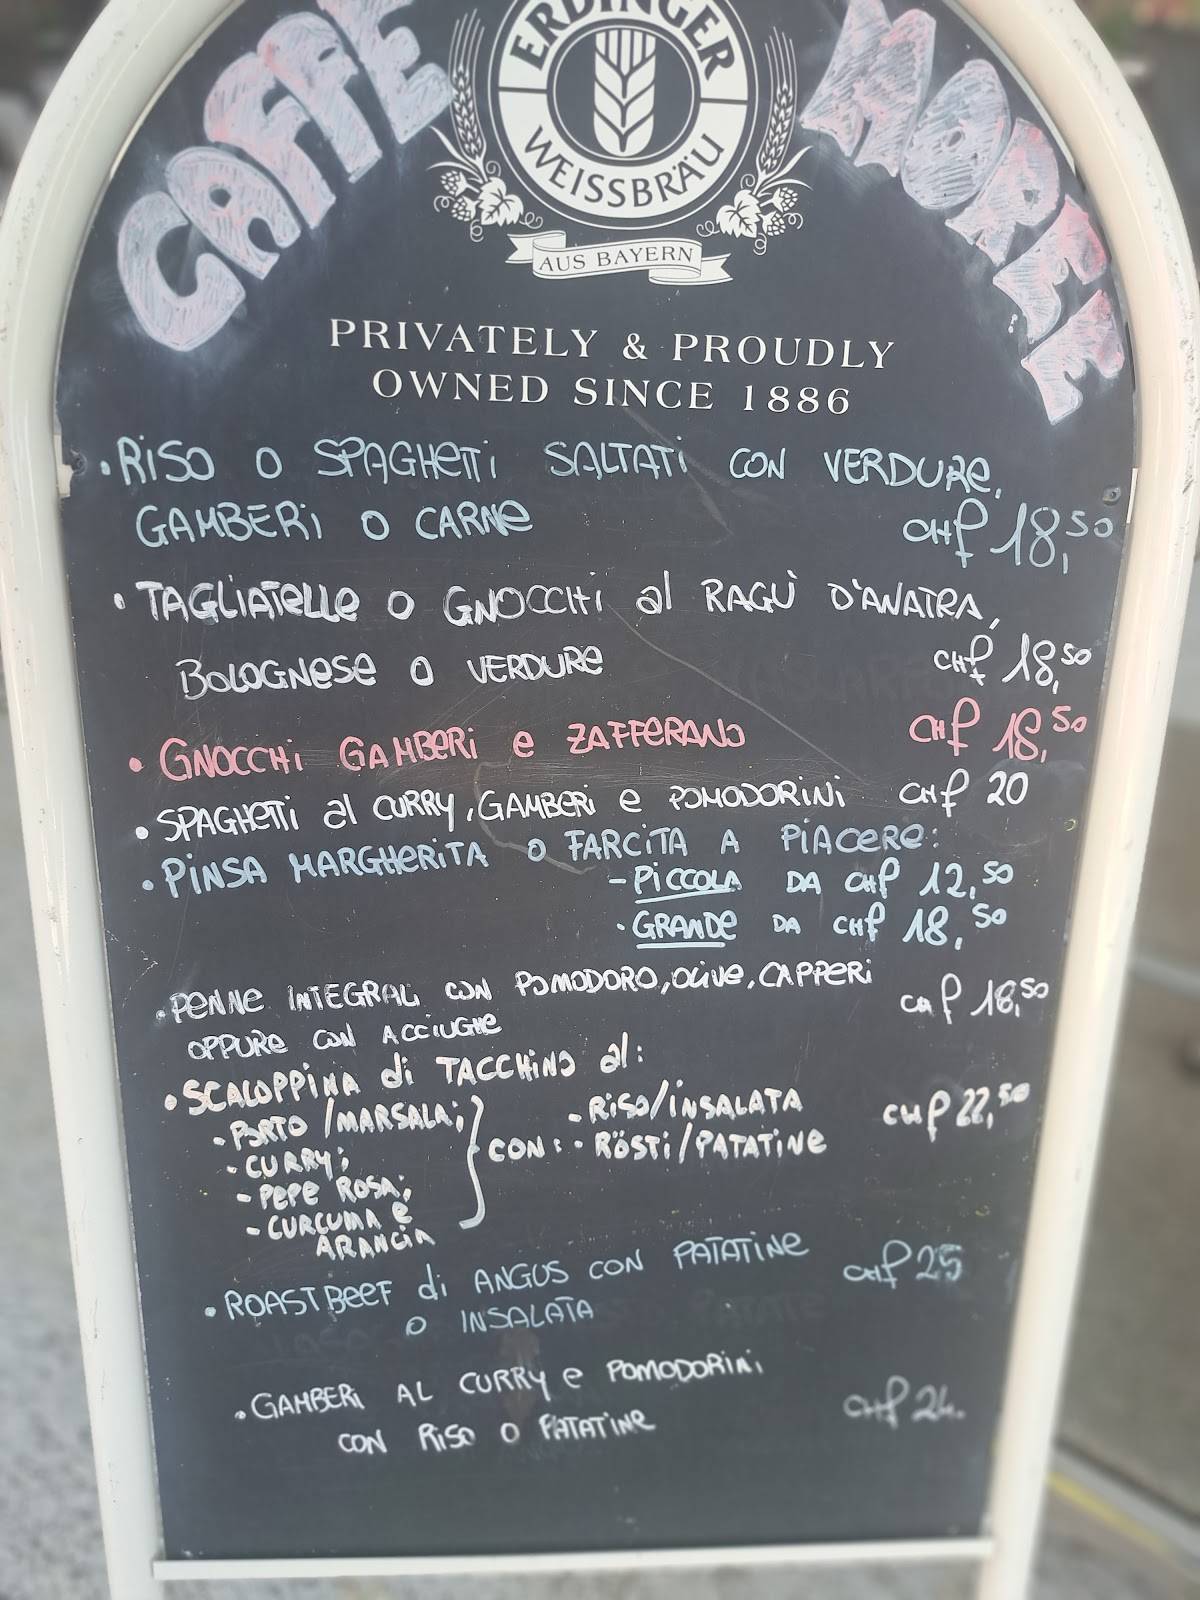 CAFFE
ERDINGER
MORÉÉ
WEISSBRÄU
AUS BAYERN
PRIVATELY & PROUDLY
OWNED SINCE 1886
• RISO O SPAGHETTI SALTATI CON VERDURE,
GAMBERI O CARNE CHF 18,50
• TAGLIATELLE O GNOCCHI al RAGÙ D'ANATRA,
BOLOGNESE O VERDURE CHF 18,50
• GNOCCHI GAMBERI e ZAFFERANO CHF 18,50
• SPAGHETTI al CURRY, GAMBERI e POMODORINI CHF 20
• PINSA MARGHERITA O FARCITA A PIACERE:
- PICCOLA DA CHF 12,50
- GRANDE DA CHF 18,50
• PENNE INTEGRALI CON POMODORO, OLIVE, CAPPERI CHF 18,50
OPPURE CON ACCIUGHE
• SCALOPPINA di TACCHINO al:
- PORTO /MARSALA; - RISO/INSALATA CHF 22,50
- CURRY; CON: - RÖSTI/PATATINE
- PEPE ROSA;
- CURCUMA E
ARANCIA
• ROASTBEEF di ANGUS CON PATATINE CHF 25
O INSALATA
• GAMBERI AL CURRY e POMODORINI CHF 24.
CON RISO O PATATINE